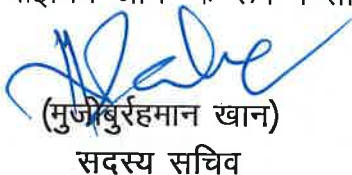 के रूप में
(मुजीबुर्रहमान खान)
सदस्य सचिव